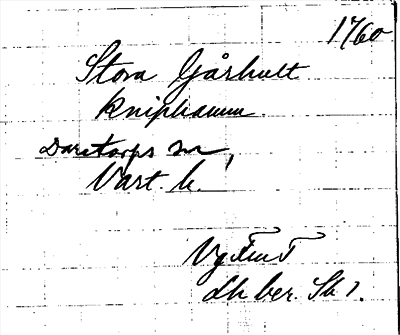 1760
Stora Gårhult
kniphamm
Darstorps sn,
Vart. h.
Vg
Lh ber. Sk 1.